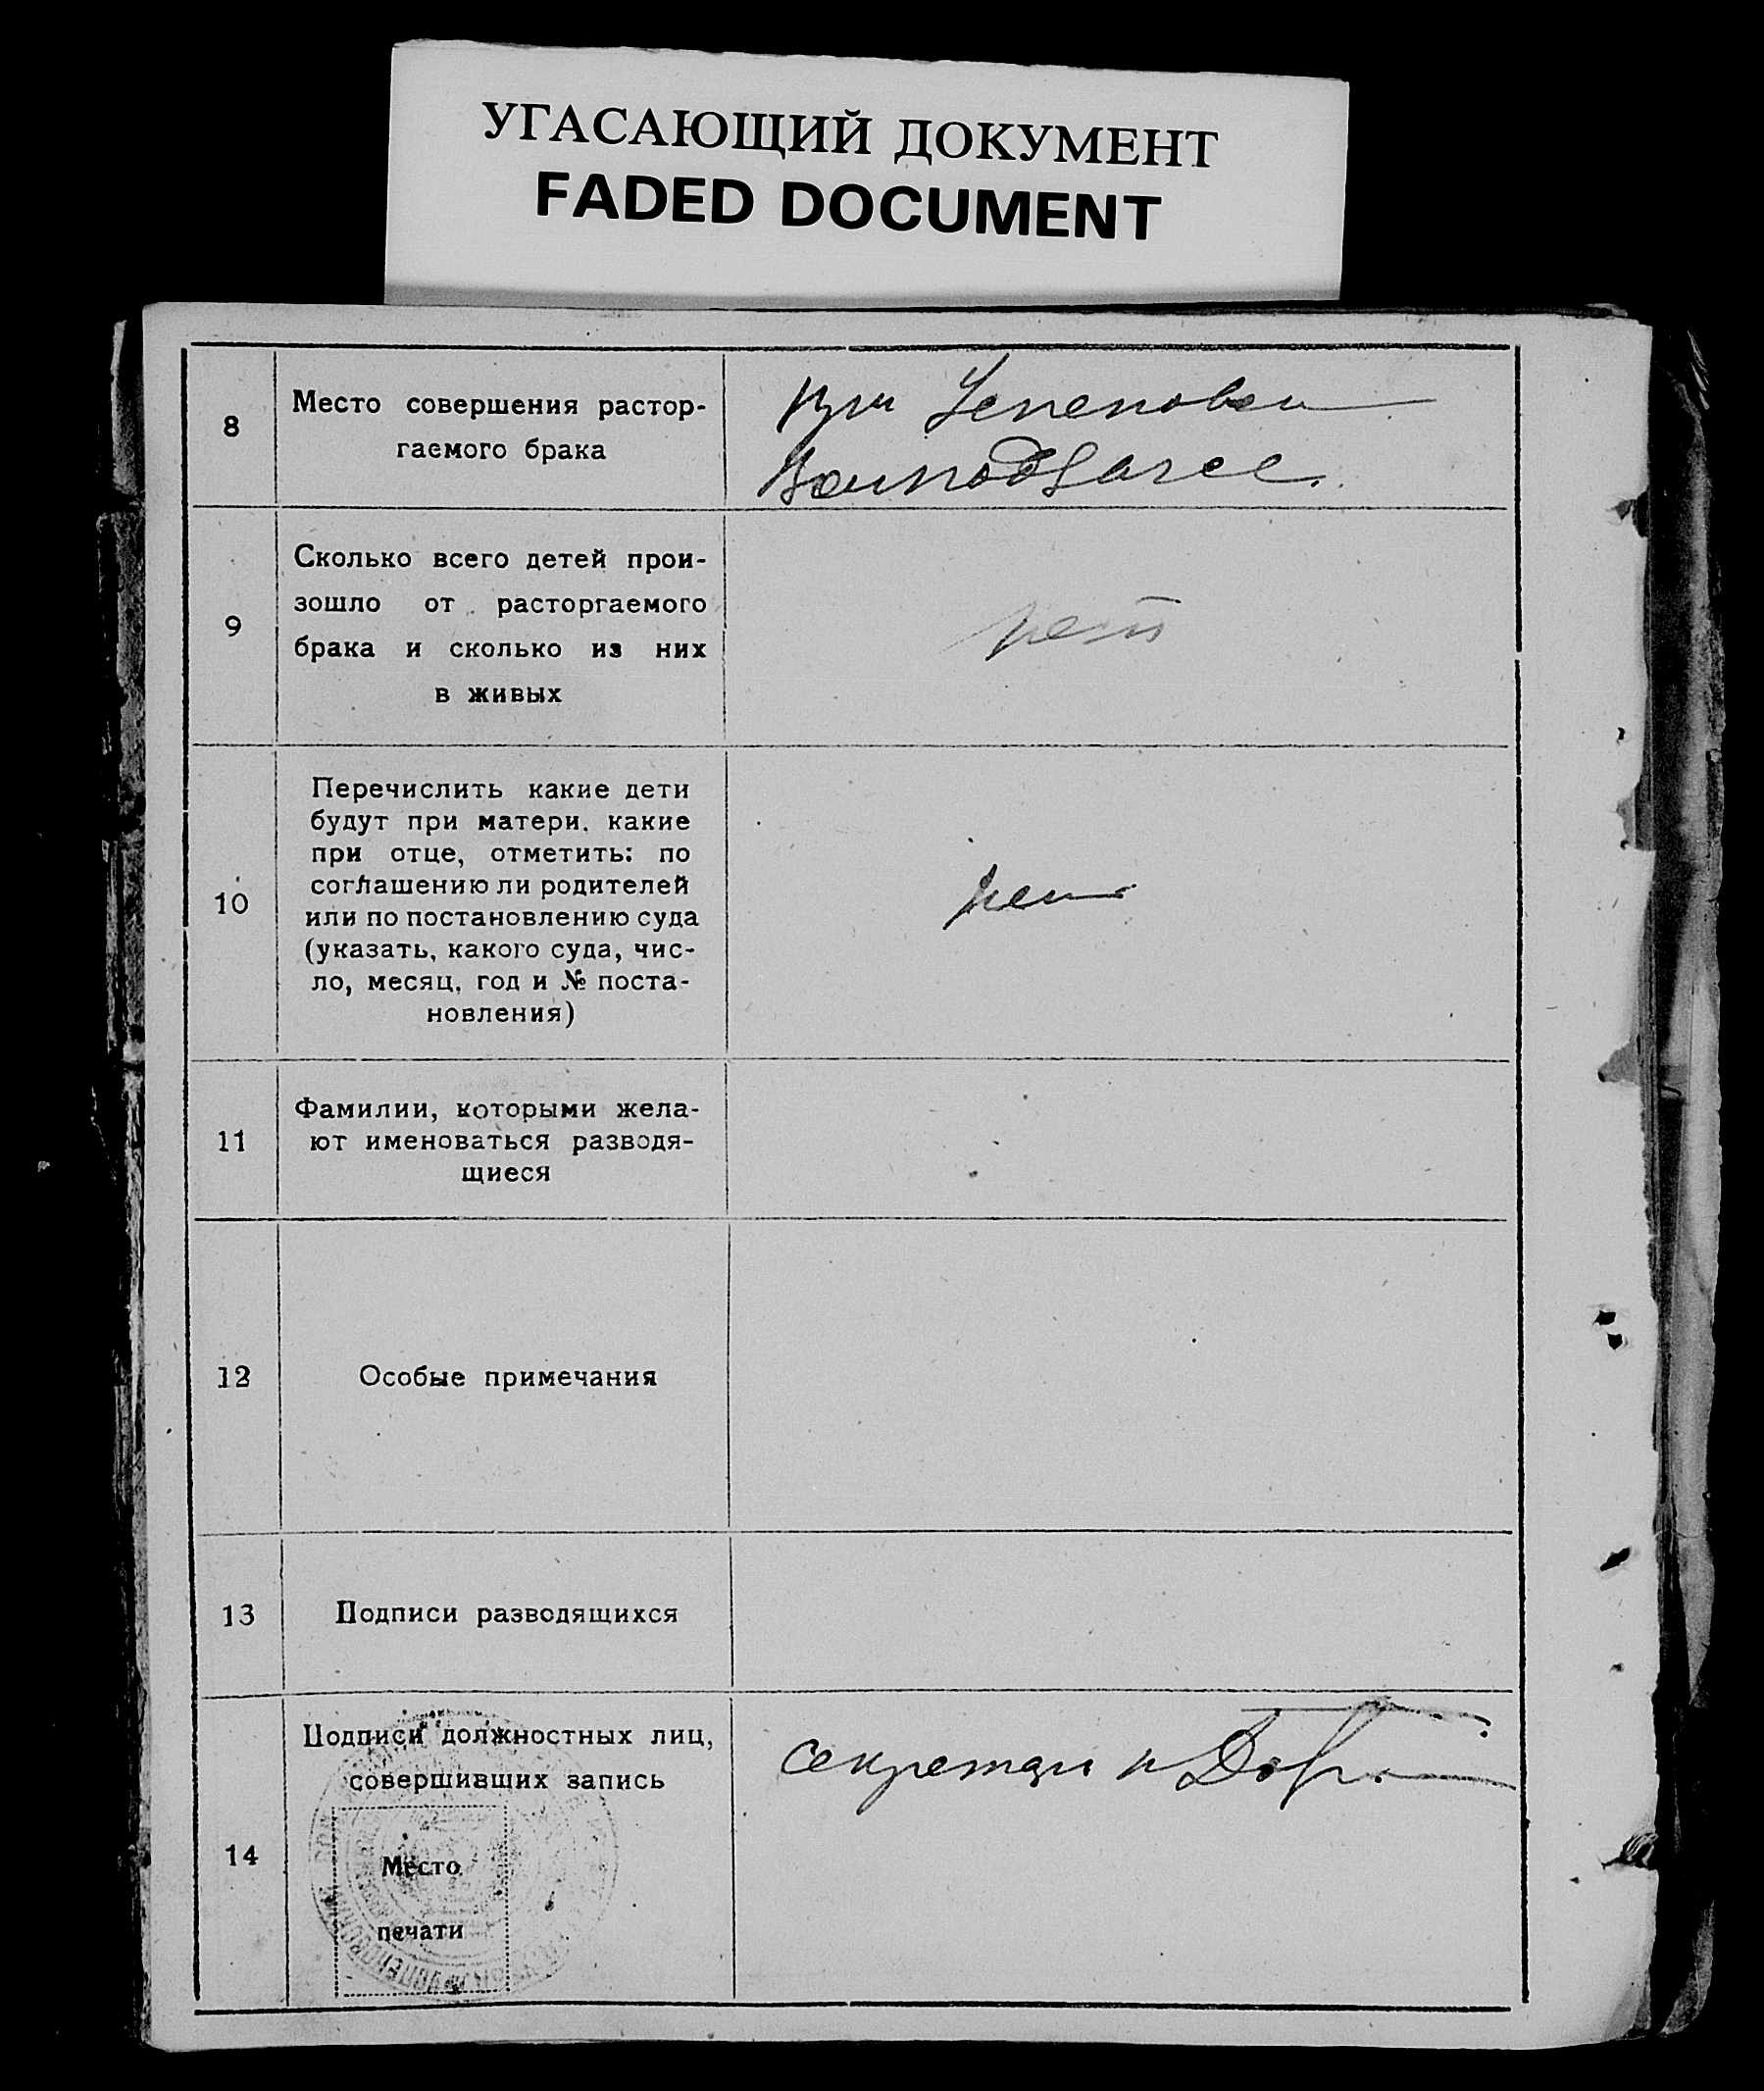 УГАСАЮЩИЙ ДОКУМЕНТ
FADED DOCUMENT
8
Место совершения растор-
гаемого брака
при
9
Сколько всего детей прои-
зошло от расторгаемого
брака и сколько из них
в живых
нет
10
Перечислить какие дети
будут при матери, какие
при отце, отметить: по
соглашению ли родителей
или по постановлению суда
(указать, какого суда, чис-
ло, месяц, год и № поста-
новления)
нет
11
Фамилии, которыми жела-
ют именоваться разводя-
щиеся
12
Особые примечания
13
Подписи разводящихся
14
Подписи должностных лиц,
совершивших запись
Место
печати
секретарь